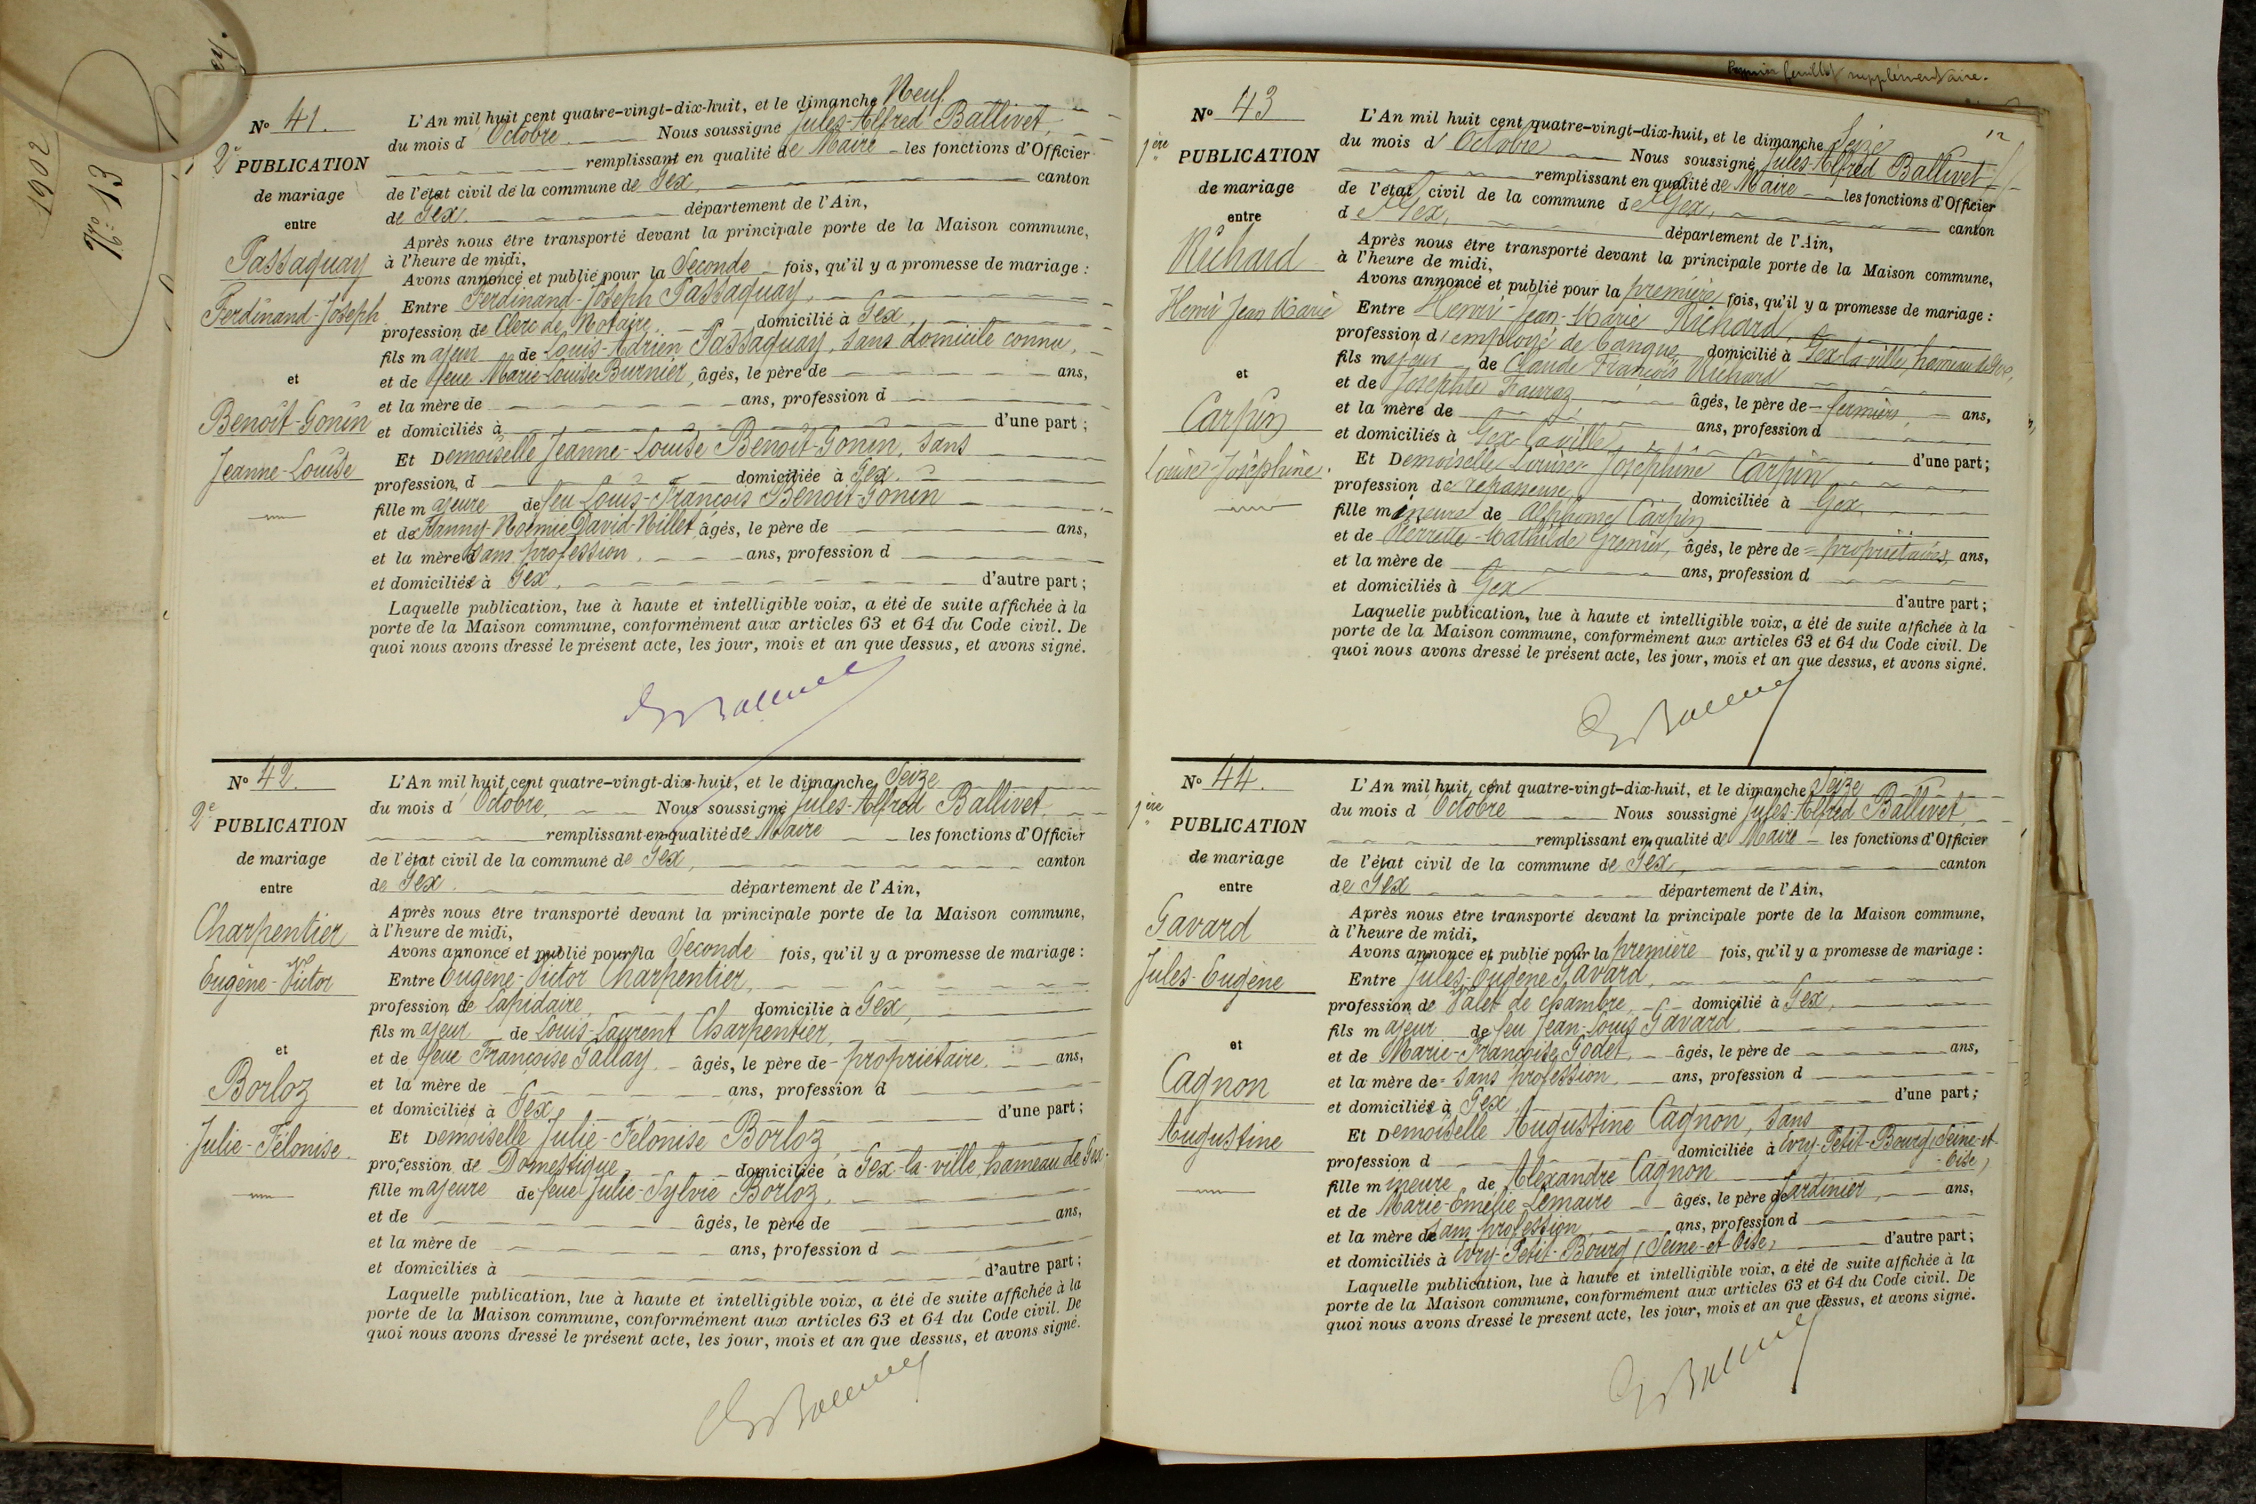 1902
No 13
Premier feuillet supplémentaire.
No 41.
2e PUBLICATION
de mariage
entre
Passaquay
Ferdinand-Joseph
et
Benoît-Gonin
Jeanne-Louise
L'An mil huit cent quatre-vingt-dix-huit, et le dimanche Neuf
du mois d'Octobre. Nous soussigné Jules-Alfred Ballivet,
remplissant en qualité de Maire les fonctions d'Officier
de l'état civil de la commune de Gex, canton
de Gex. département de l'Ain,
Après nous être transporté devant la principale porte de la Maison commune,
à l'heure de midi,
Avons annoncé et publié pour la Seconde fois, qu'il y a promesse de mariage :
Entre Ferdinand-Joseph Passaquay,
profession de Clerc de Notaire, domicilié à Gex,
fils majeur de Louis-Adrien Passaquay, sans domicile connu,
et de feue Marie-Louise Burnier, âgés, le père de ans,
et la mère de ans, profession d
et domiciliés à d'une part ;
Et Demoiselle Jeanne-Louise Benoît-Gonin, sans
profession, d domiciliée à Gex.
fille majeure de feu Louis-François Benoit-Gonin
et de Fanny-Noémie David-Nillet, âgés, le père de ans,
et la mère d sans profession. ans, profession d
et domiciliée à Gex, d'autre part ;
Laquelle publication, lue à haute et intelligible voix, a été de suite affichée à la
porte de la Maison commune, conformément aux articles 63 et 64 du Code civil. De
quoi nous avons dressé le présent acte, les jour, mois et an que dessus, et avons signé.
No 42.
2e PUBLICATION
de mariage
entre
Charpentier
Eugène-Victor
et
Borloz
Julie-Félonise.
L'An mil huit cent quatre-vingt-dix-huit, et le dimanche Seize
du mois d'Octobre, Nous soussigné Jules-Alfred Ballivet,
remplissant en qualité de Maire les fonctions d'Officier
de l'état civil de la commune de Gex, canton
de Gex. département de l'Ain,
Après nous être transporté devant la principale porte de la Maison commune,
à l'heure de midi,
Avons annoncé et publié pour la Seconde fois, qu'il y a promesse de mariage :
Entre Eugène-Victor Charpentier,
profession de Lapidaire, domicilié à Gex,
fils majeur de Louis-Laurent Charpentier,
et de feue Françoise Tallay. âgés, le père de propriétaire. ans,
et la mère de ans, profession d
et domiciliés à Gex, d'une part ;
Et Demoiselle Julie-Félonise Borloz,
profession de Domestique, domiciliée à Gex-la-ville, hameau de Gex.
fille majeure de feue Julie-Sylvie Borloz,
et de âgés, le père de ans,
et la mère de ans, profession d
et domiciliés à d'autre part ;
Laquelle publication, lue à haute et intelligible voix, a été de suite affichée à la
porte de la Maison commune, conformément aux articles 63 et 64 du Code civil. De
quoi nous avons dressé le présent acte, les jour, mois et an que dessus, et avons signé.
No 43
1ère PUBLICATION
de mariage
entre
Richard
Henri Jean Marie
et
Carpin
Louise-Joséphine.
12
L'An mil huit cent quatre-vingt-dix-huit, et le dimanche Seize
du mois d'Octobre Nous soussigné Jules-Alfred Ballivet,
remplissant en qualité de Maire les fonctions d'Officier
de l'état civil de la commune de Gex, canton
de Gex, département de l'Ain,
Après nous être transporté devant la principale porte de la Maison commune,
à l'heure de midi,
Avons annoncé et publié pour la première fois, qu'il y a promesse de mariage :
Entre Henri-Jean-Marie Richard,
profession d'employé de banque domicilié à Gex-la-ville, hameau de Gex,
fils majeur de Claude François Richard
et de Josephte âgés, le père de fermiers, ans,
et la mère de ans, profession d
et domiciliés à Gex-la-ville d'une part ;
Et Demoiselle Louise-Joséphine Carpin
profession de repasseuse domiciliée à Gex
fille mineure de Alphonse Carpin
et de Pierrette-Mathilde Grenier, âgés, le père de propriétaires, ans,
et la mère de ans, profession d
et domiciliés à Gex d'autre part ;
Laquelle publication, lue à haute et intelligible voix, a été de suite affichée à la
porte de la Maison commune, conformément aux articles 63 et 64 du Code civil. De
quoi nous avons dressé le présent acte, les jour, mois et an que dessus, et avons signé.
No 44.
1ère PUBLICATION
de mariage
entre
Gavard
Jules-Eugène
et
Cagnon
Augustine
L'An mil huit cent quatre-vingt-dix-huit, et le dimanche Seize
du mois d'Octobre Nous soussigné Jules-Alfred Ballivet,
remplissant en qualité de Maire les fonctions d'Officier
de l'état civil de la commune de Gex, canton
de Gex département de l'Ain,
Après nous être transporté devant la principale porte de la Maison commune,
à l'heure de midi,
Avons annoncé et publié pour la première fois, qu'il y a promesse de mariage :
Entre Jules-Eugène Gavard,
profession de Valet de chambre, domicilié à Gex,
fils majeur de feu Jean-Louis Gavard
et de Marie-Françoise Godet, âgés, le père de ans,
et la mère de sans profession. ans, profession d
et domiciliée à Gex d'une part ;
Et Demoiselle Augustine Cagnon, sans
profession d domiciliée à Evry-Petit-Bourg, (Seine-et-
Oise)
fille mineure de Alexandre Cagnon
et de Marie-Emélie Lemaire âgés, le père de Jardinier, ans,
et la mère de sans profession ans, profession d
et domiciliés à Evry-Petit-Bourg (Seine-et-Oise) d'autre part ;
Laquelle publication, lue à haute et intelligible voix, a été de suite affichée à la
porte de la Maison commune, conformément aux articles 63 et 64 du Code civil. De
quoi nous avons dressé le présent acte, les jour, mois et an que dessus, et avons signé.